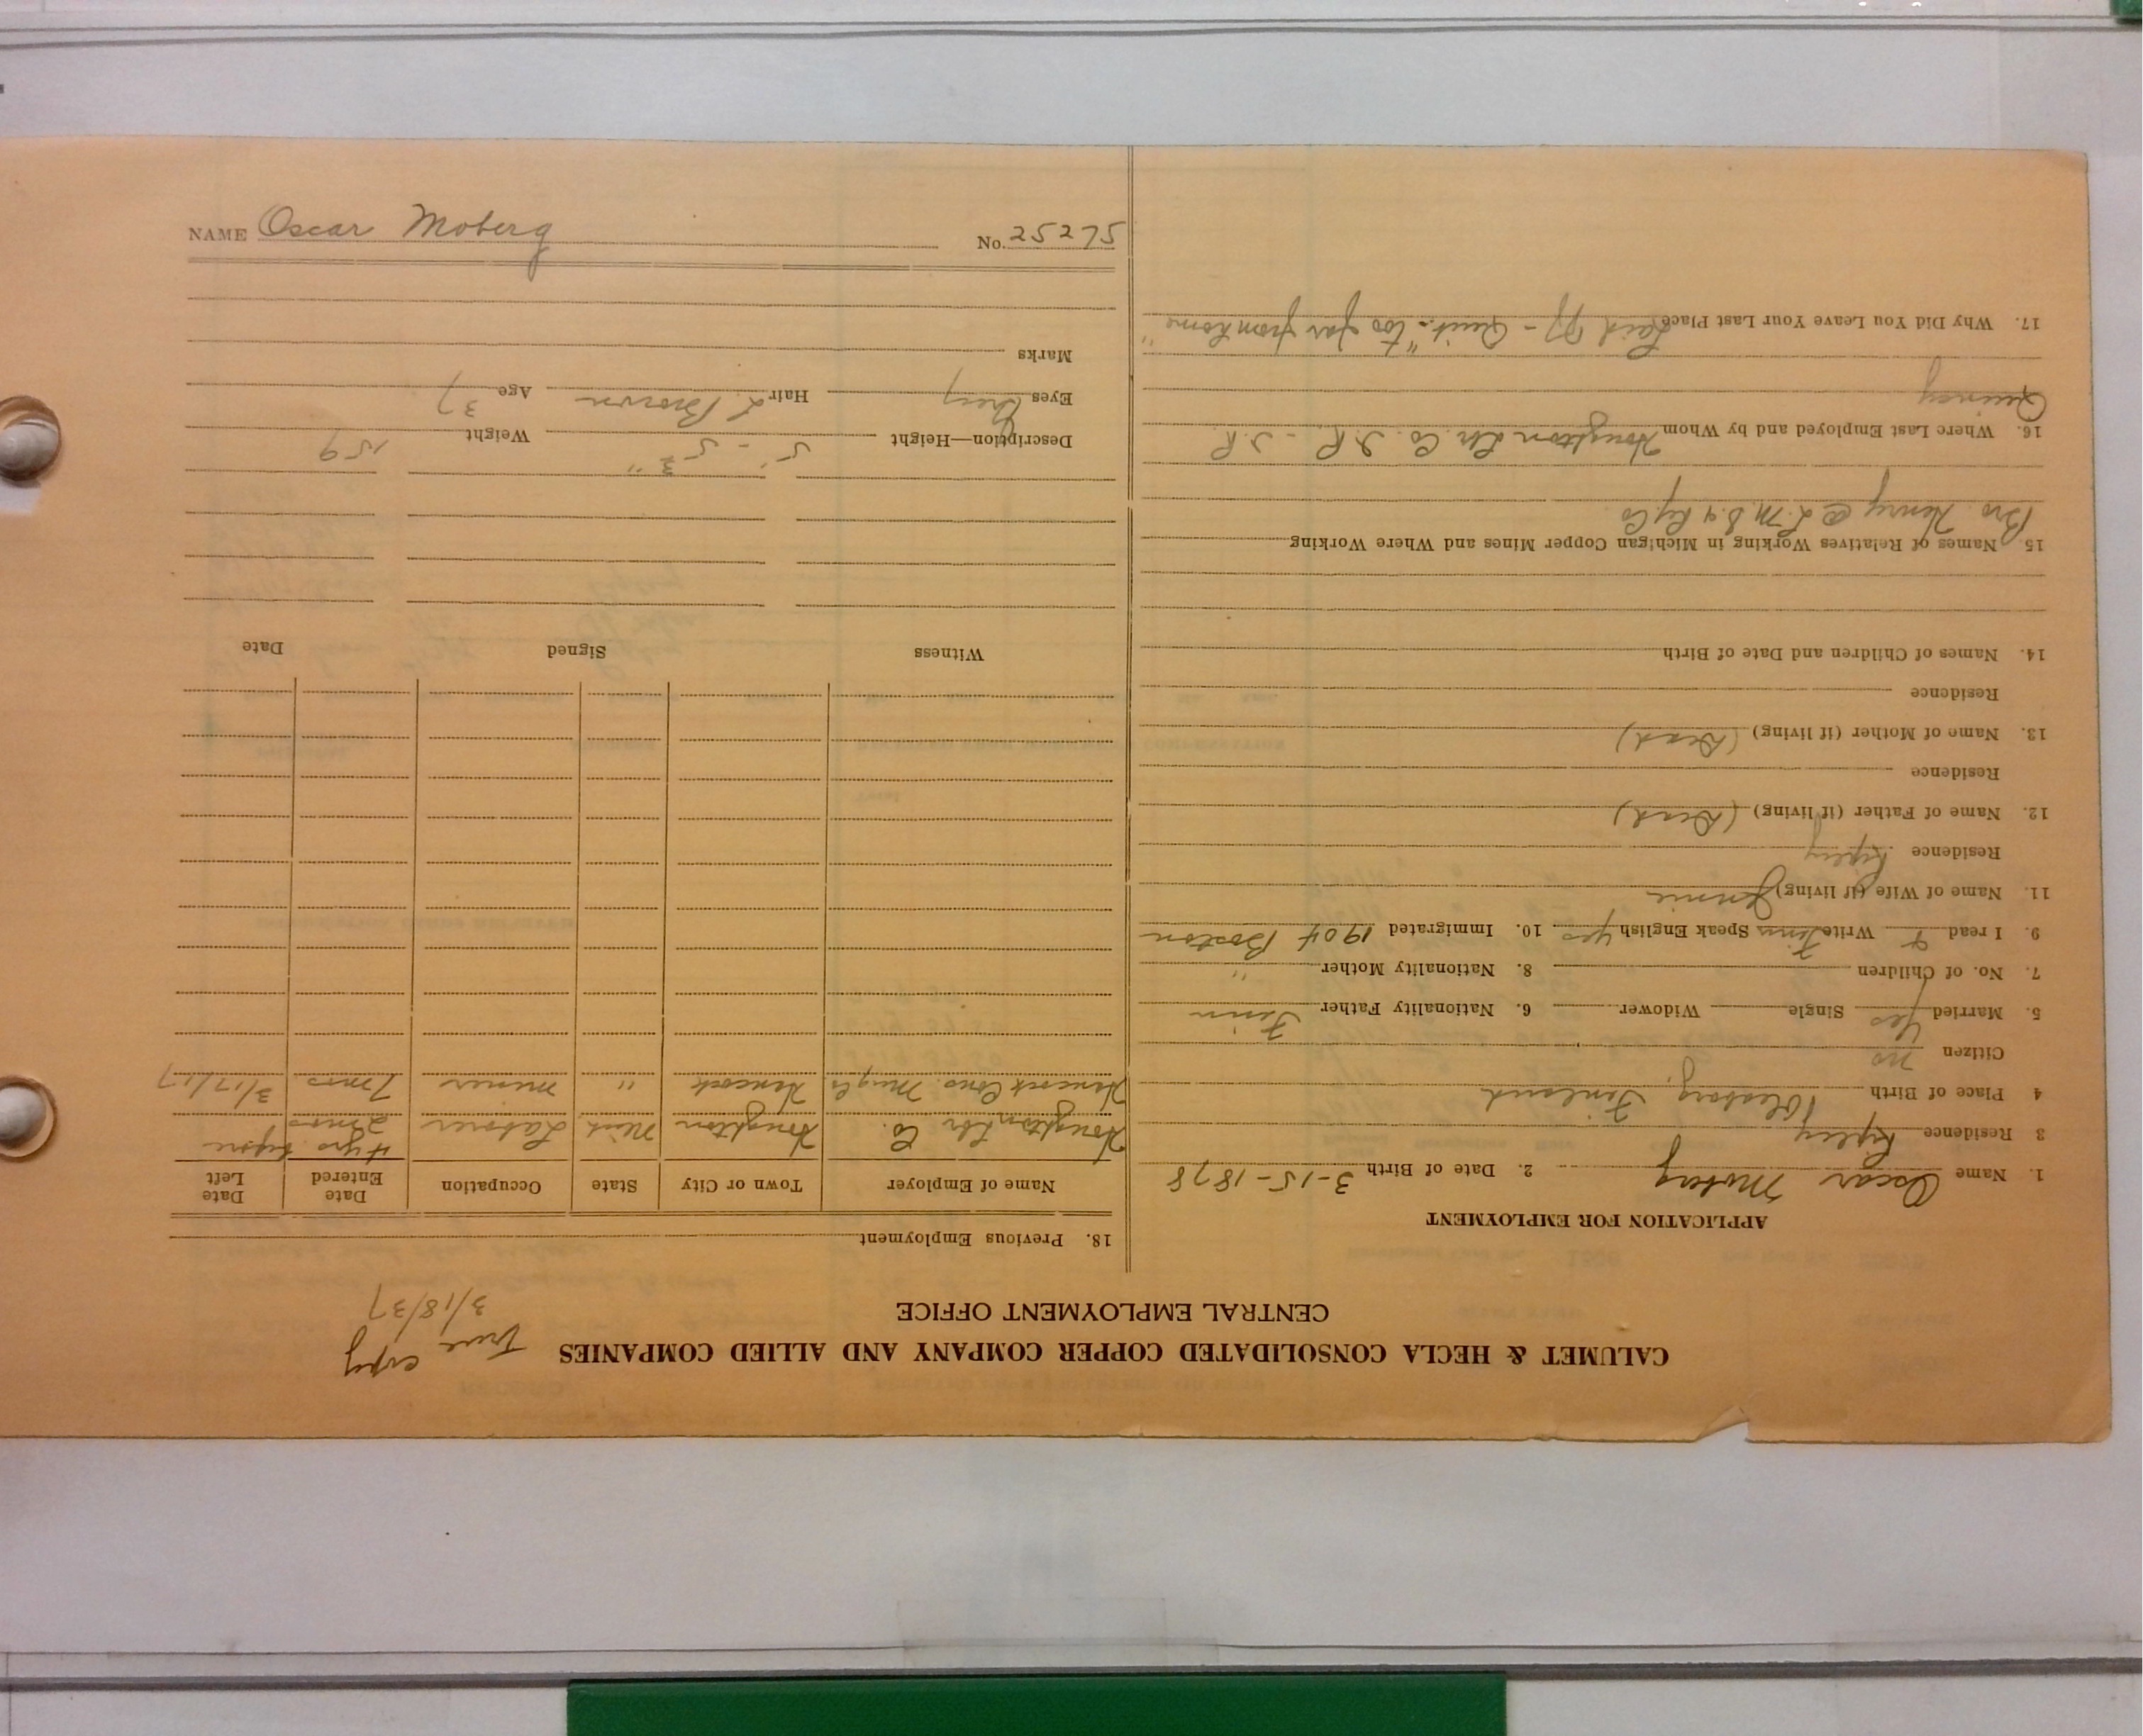 CALUMET & HECLA CONSOLIDATED COPPER COMPANY AND ALLIED COMPANIES
CENTRAL EMPLOYMENT OFFICE
True copy
3/18/37
APPLICATION FOR EMPLOYMENT
1. Name Oscar Moberg 2. Date of Birth 3-15-1878
3 Residence Ripley
4 Place of Birth Finland
Citizen no
5. Married Yes Single Widower 6. Nationality Father Finn
7. No. of Children 8. Nationality Mother "
9. I read & Write Finn Speak English yes 10. Immigrated 1904 Boston
11. Name of Wife (if living) Jennie
Residence Ripley
12. Name of Father (if living) (Dead)
Residence
13. Name of Mother (if living) (Dead)
Residence
14. Names of Children and Date of Birth
15. Names of Relatives Working in Michigan Copper Mines and Where Working
Bro. Henry @ L.M.S. & Rfg. Co
16. Where Last Employed and by Whom Houghton Lbr. Co. I.R. - I.R.
Quincy
17. Why Did You Leave Your Last Place Laid off - Quit - "too far from home"
18. Previous Employment
Name of Employer Town or City State Occupation Date Entered Date Left
Houghton Lbr Co. Houghton Mich Laborer 4 yrs before 2 mos
Hancock Cons. Hancock " miner 7 mos 3/17/17
Witness Signed Date
Description—Height 5' - 5 3/4" Weight 159
Eyes Grey Hair L. Brown Age 37
Marks
NAME Oscar Moberg No. 25275